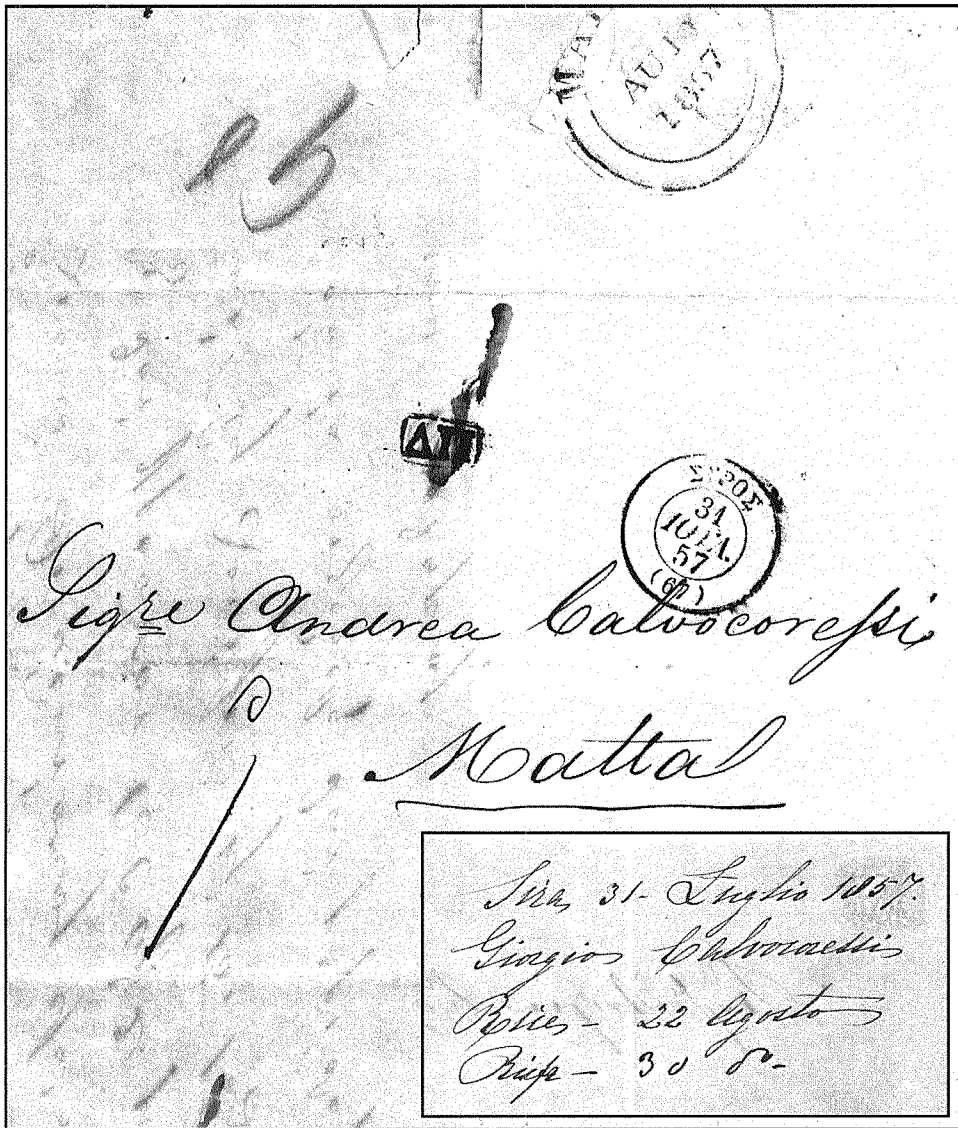 AU
1857
ΔΠ
ΣΥΡΟΣ
31
ΙΟΥΛ.
57
(67)
Sigre Andrea Calvocoressi
Malta
Sira, 31 - Luglio 1857.
Giorgio Calvocoressi
22 Agosto
30 do -